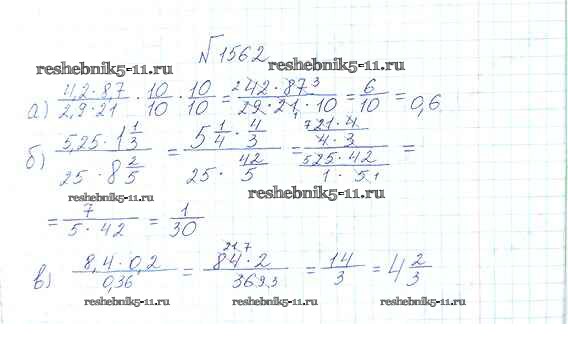 №1562
reshebnik5-11.ru reshebnik5-11.ru
а) 4,2·8,7 / 2,9·21 · 10/10 · 10/10 = 2 42·87 3 / 29·21·10 = 6/10 = 0,6
б) 5,25·1 1/3 / 25·8 2/5 = 5 1/4 · 4/3 / 25 · 42/5 = 7 21·4 / 4·3 / 5 25·42 / 1·5 1 =
reshebnik5-11.ru reshebnik5-11.ru
= 7 / 5·42 = 1/30
в) 8,4·0,2 / 0,36 = 21 7 84·2 / 36 9 3 = 14/3 = 4 2/3
reshebnik5-11.ru reshebnik5-11.ru reshebnik5-11.ru